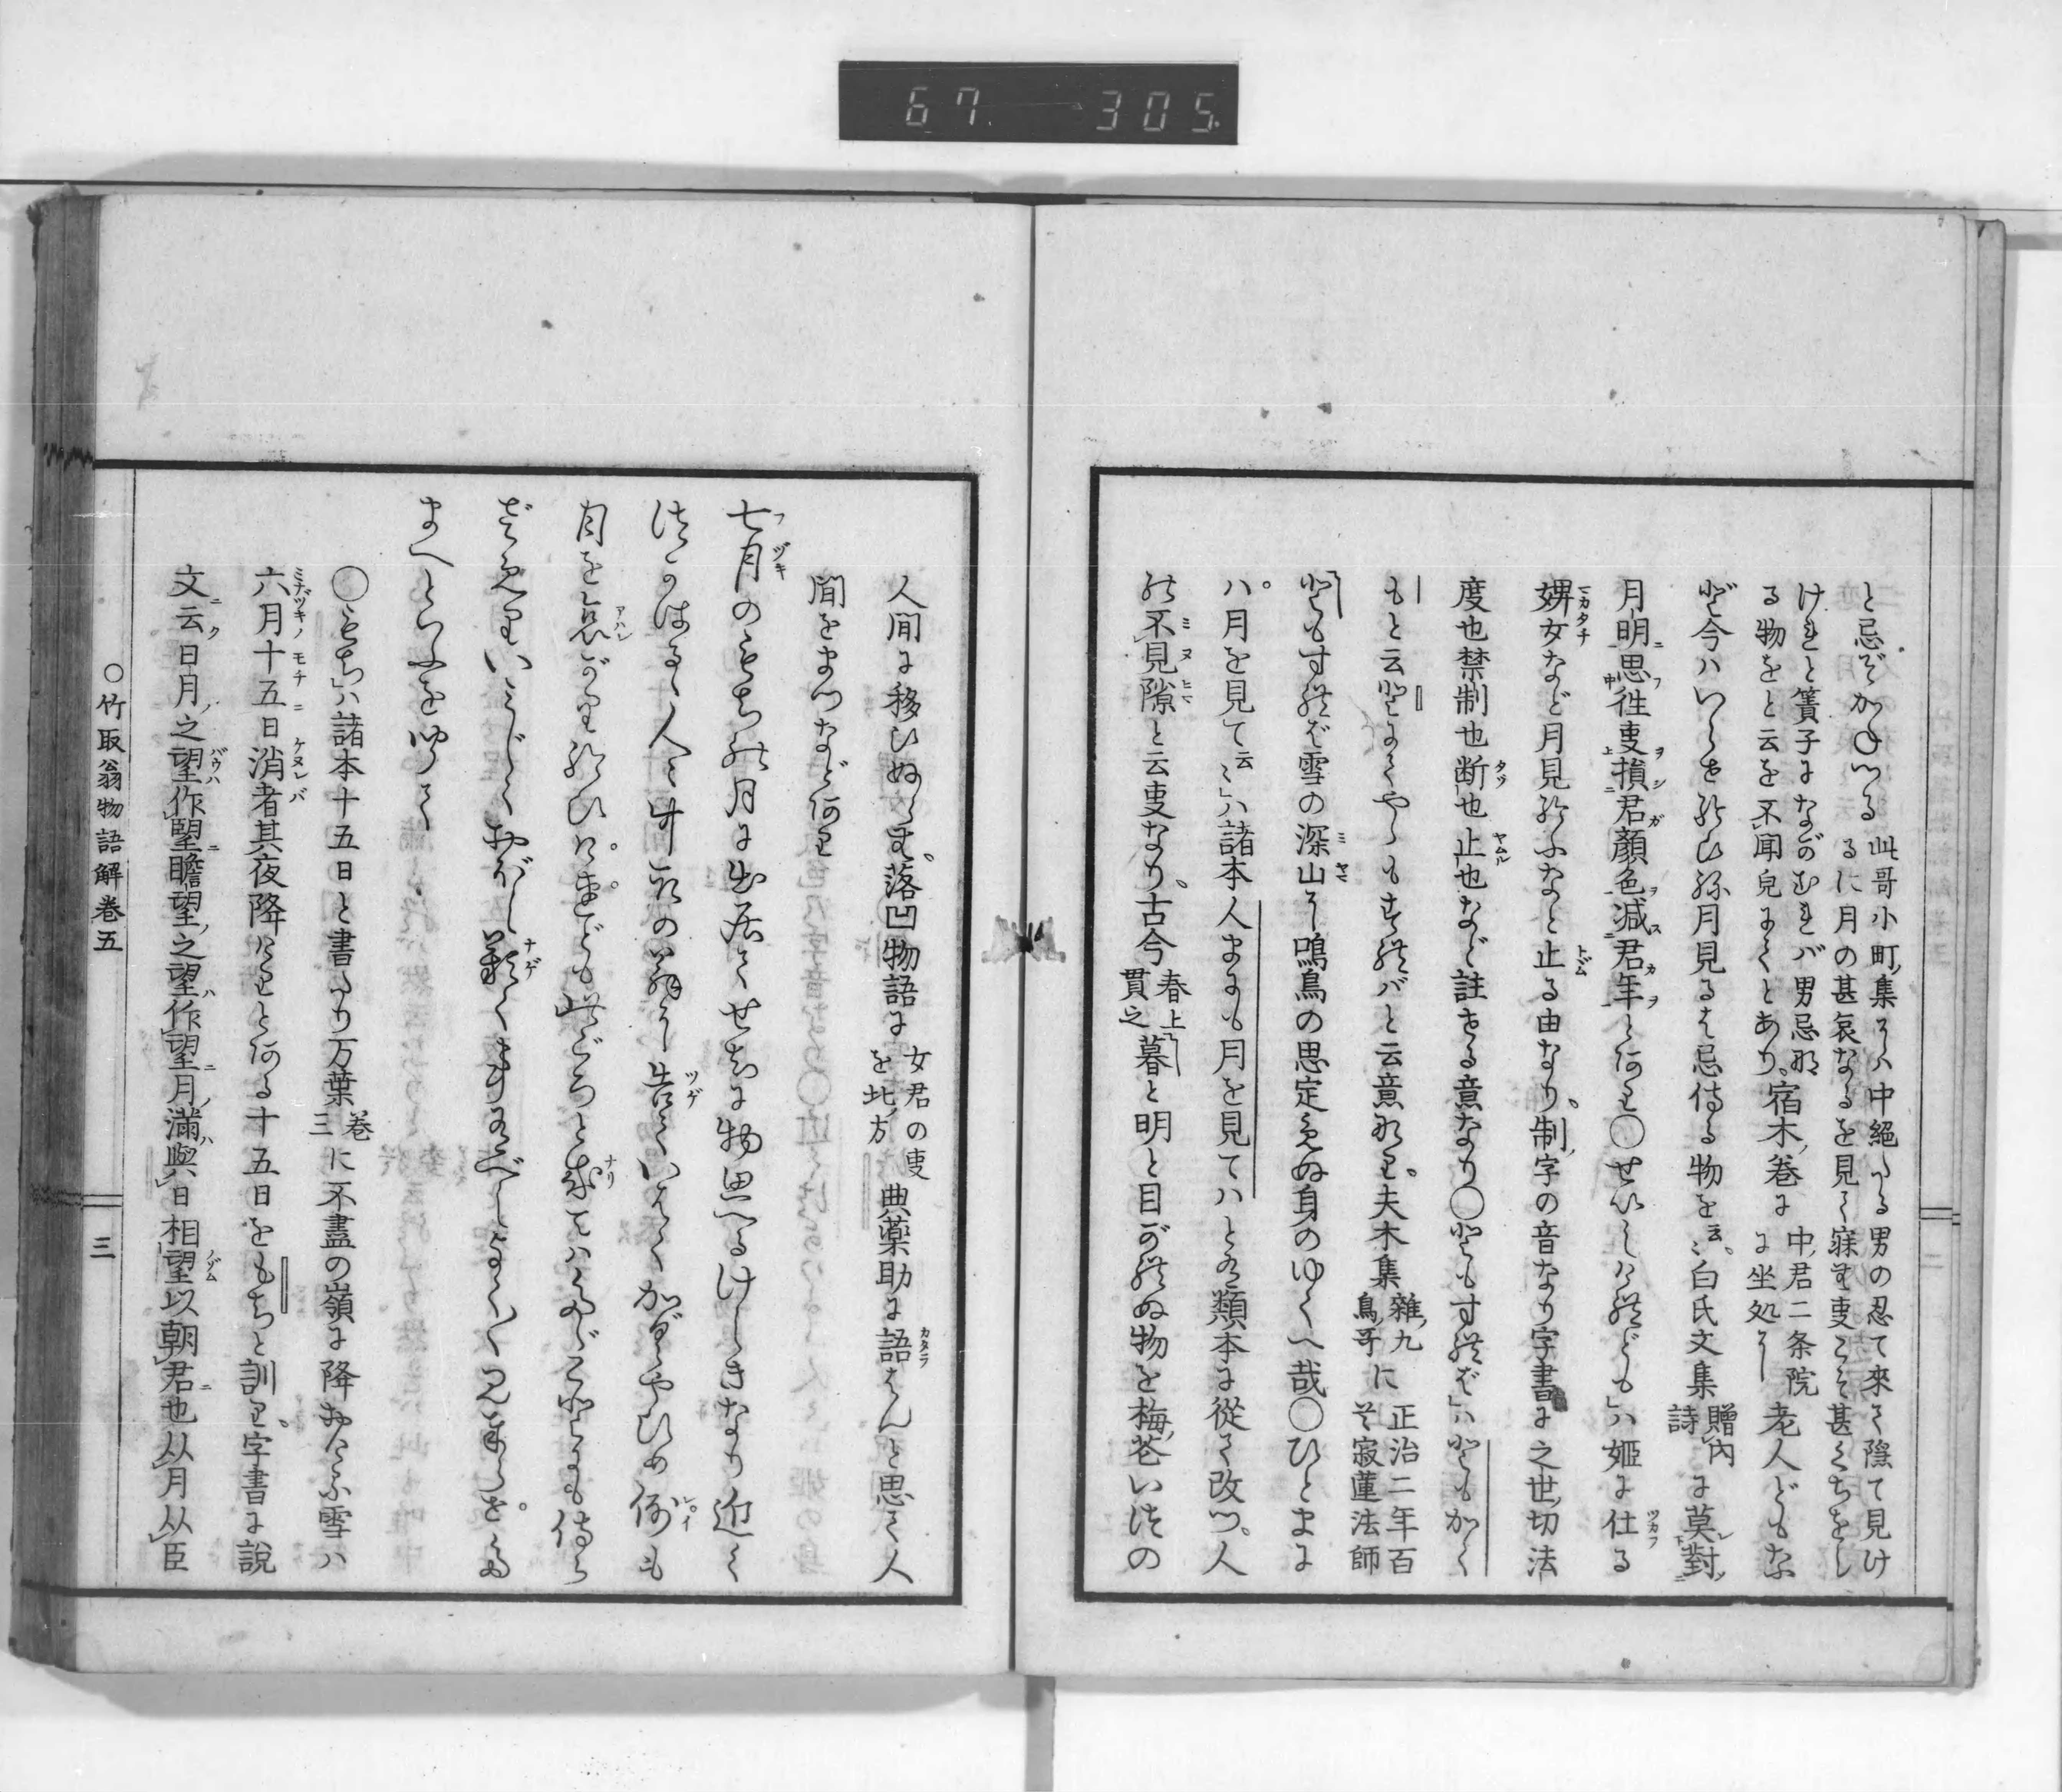 67 305
と忌ぞかねつる 此哥小町集には中絶たる男の忍て來て隱て見け
るに月の甚哀なるを見て寐む叓こそ甚くちをし
けれと簀子にながむれバ男忌那
る物をと云を不聞皃にてとあり 宿木巻に 中君二条院
に坐処に 老人どもな
ど今ハいらせ給ひね月見るは忌侍る物を云〻 白氏文集 贈内
詩 に莫對
月明思徃叓損君顔色減君年とあり〇せいしけれども」ハ姫に仕る
婢女など月見給ふなと止る由なり制字の音なり字書に之世切法
度也禁制也断也止也など註せる意なり〇ともすれば」ハともかく
もと云とにくやらもすれバと云意なり夫木集 雜九
鳥哥 に 正治二年百
首寂蓮法師
ともすれば雪の深山に鳴鳥の思定めぬ身のゆくへ哉〇ひとまに
ハ月を見て云〻」ハ諸本人まにも月を見てハとある類本に從て改つ人
の不見隙と云叓なり古今 春上
貫之 暮と明と目かれぬ物を梅花いつの
人間に移ひぬらむ落凹物語に 女君の叓
を此方 典薬助に語はんと思て人
間をまつなどあり
七月のもち の月に出居てせちに物思へるけしきなり近く
つかはるゝ人〻竹取の翁に告ていはくかぐやひめ例も
月を哀がり給ひけれども此ごろと成てハたゞごとにも侍ら
ざめりいみじくおぼし歎く事あるべしよく〳〵見奉らせた
まへといふを聞て
〇もち」ハ諸本十五日と書たり万葉 巻
三 に不盡の嶺に降おける雪ハ
六月十五日消者其夜降けりとある十五日をもちと訓り字書に説
文云日月之望作朢瞻望之望作望月滿與日相望以朝君也从月从臣
〇竹取翁物語解巻五
三